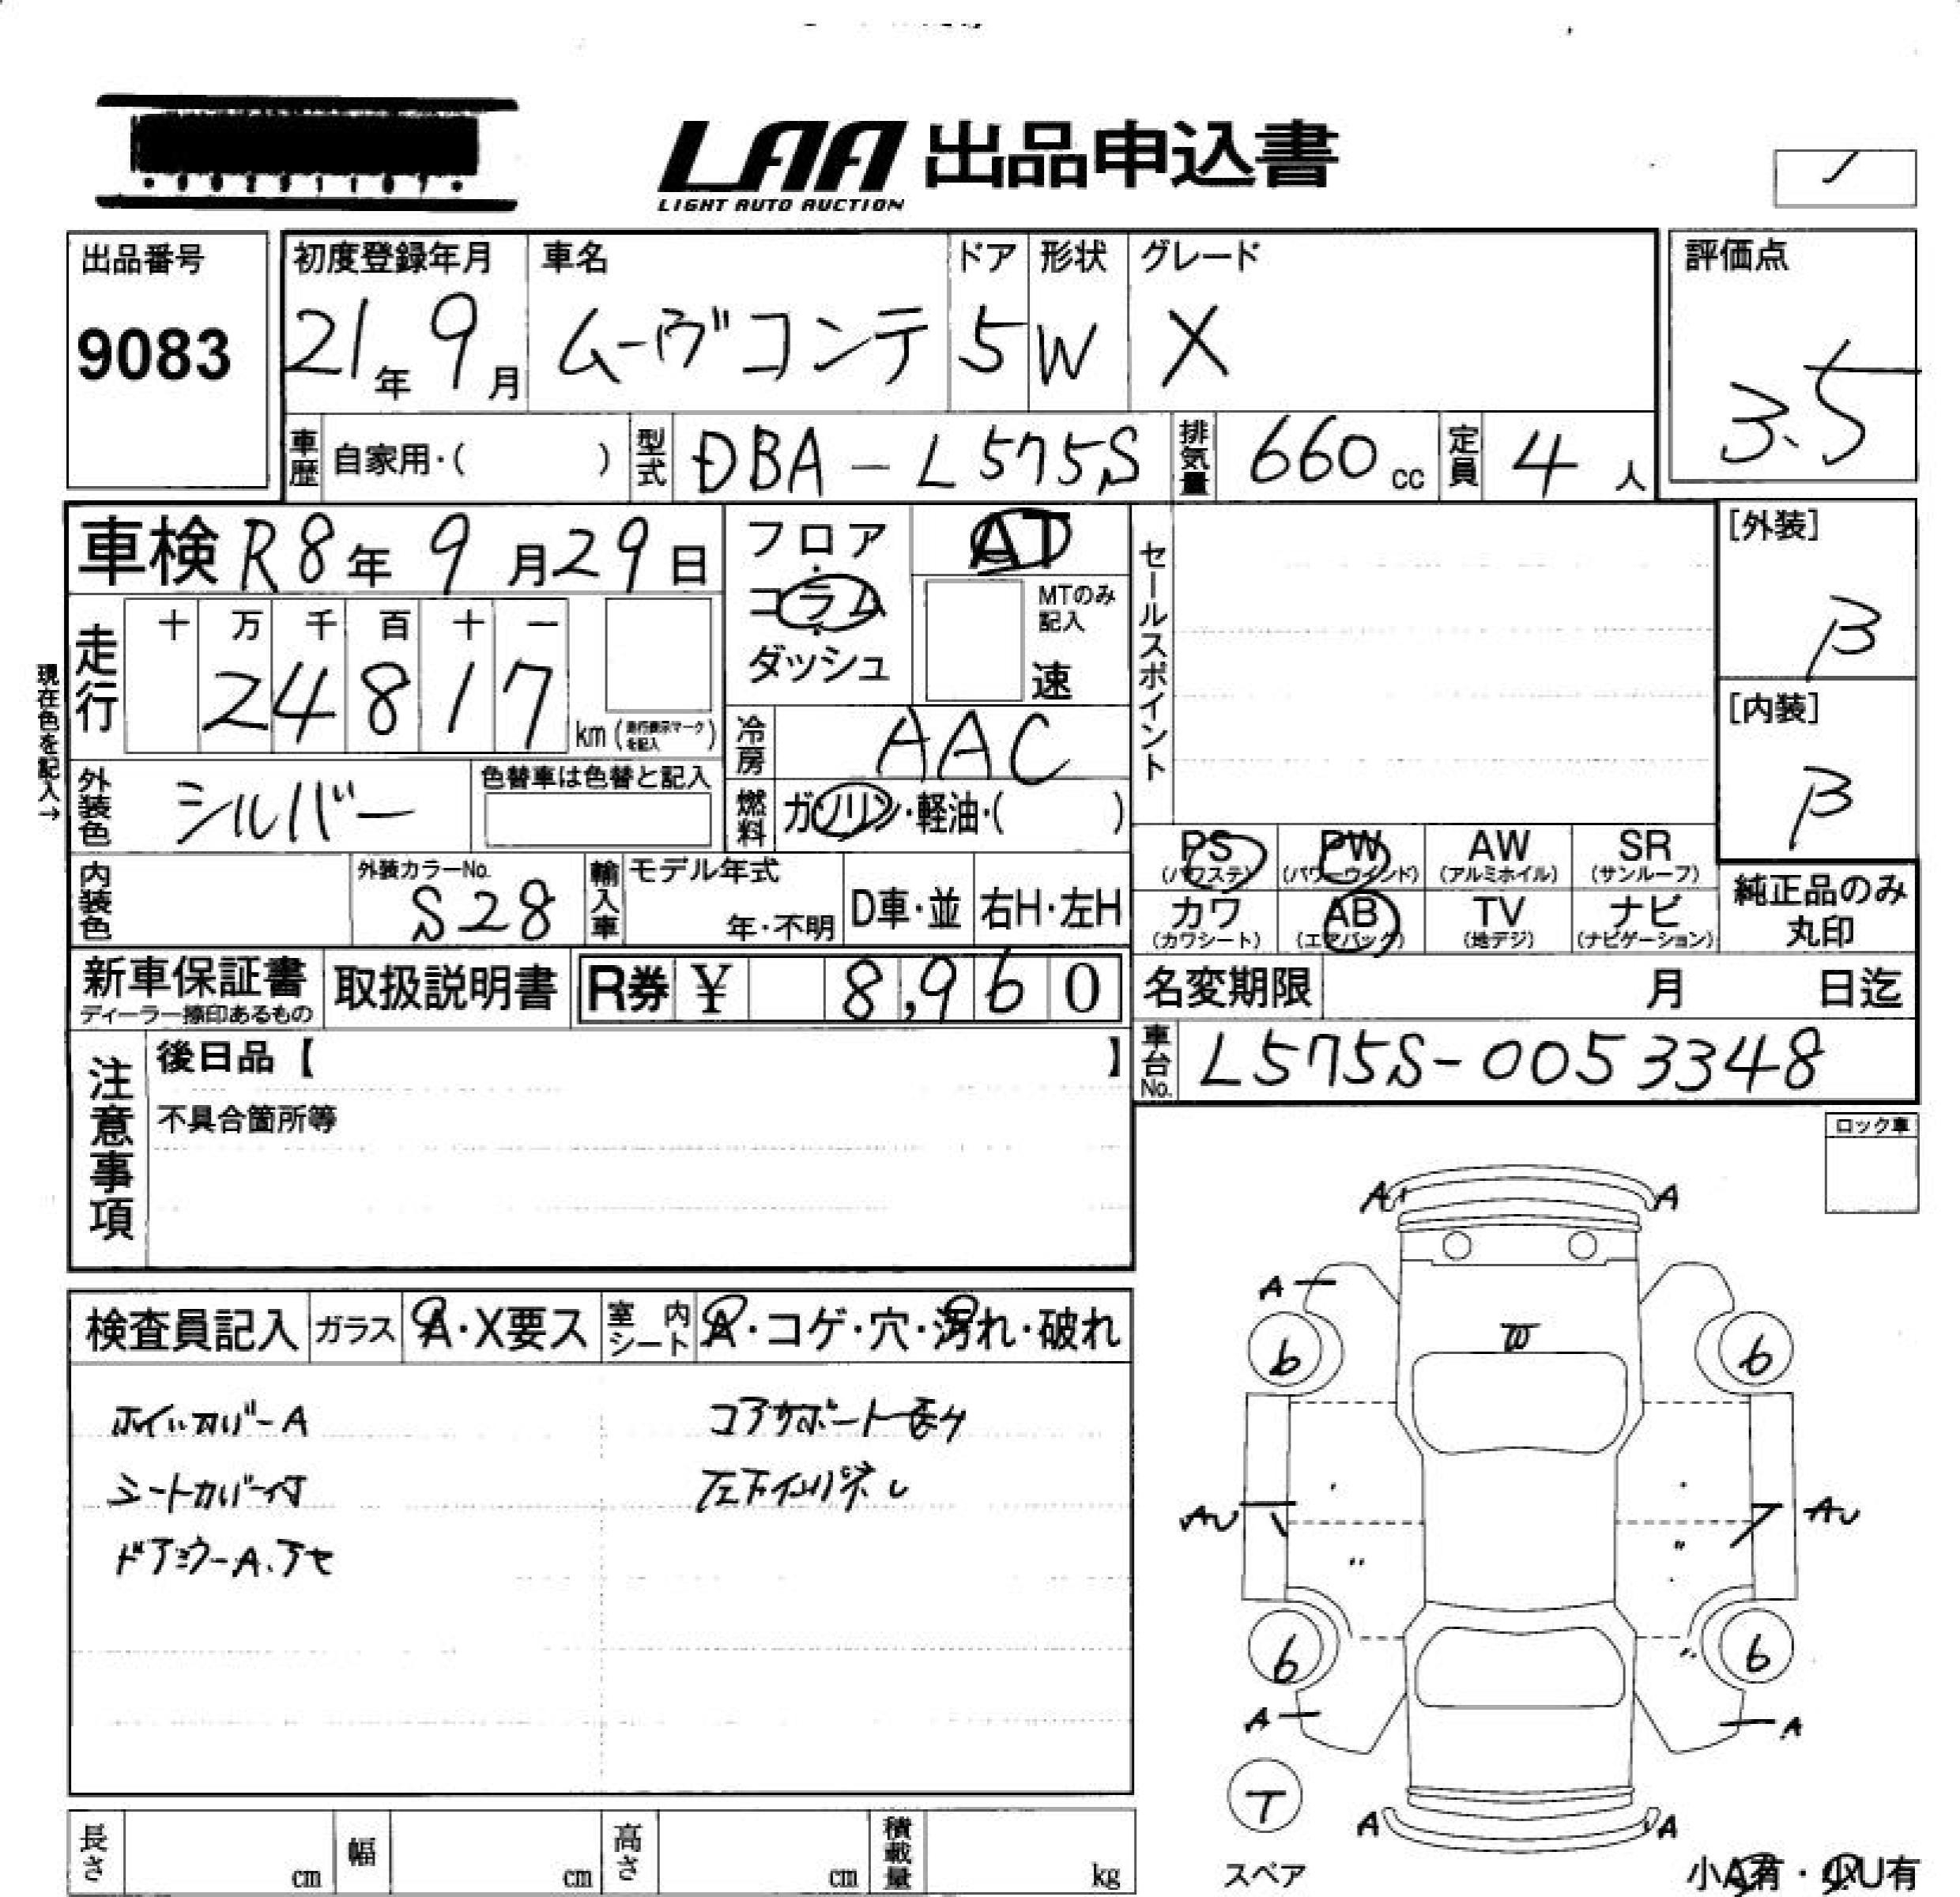 LAA 出品申込書
LIGHT AUTO AUCTION
出品番号
9083
初度登録年月
21年 9月
車名
ムーヴコンテ
ドア
5
形状
W
グレード
X
評価点
3.5
車歴 自家用・( )
型式 DBA-L575S
排気量 660 cc
定員 4 人
車検 R8年 9月29日
フロア・コラム・ダッシュ
AT
MTのみ記入
速
セールスポイント
[外装]
B
[内装]
B
現在色を記入→
走行
十 万 千 百 十 一
2 4 8 1 7
km (走行表示マークを記入)
冷房 AAC
外装色 シルバー
色替車は色替と記入
燃料 ガソリン・軽油・( )
内装色
外装カラーNo.
S28
輸入車 モデル年式
年・不明
D車・並
右H・左H
PS (パワステ)
PW (パワーウインド)
AW (アルミホイル)
SR (サンルーフ)
カワ (カワシート)
AB (エアバック)
TV (地デジ)
ナビ (ナビゲーション)
純正品のみ丸印
新車保証書
ディーラー捺印あるもの
取扱説明書
R券 ¥ 8,960
名変期限 月 日迄
車台No. L575S-0053348
注意事項
後日品【 】
不具合箇所等
ロック車
検査員記入
ガラス A・X要ス
室内シート A・コゲ・穴・汚れ・破れ
ホイルカバーA
シートカバー付
ドアミラーA、アセ
コアサポート
A A
A
W
6 6
AU AU
〃 〃
〃
6 6
A A
T
スペア
A A
小A有・小U有
長さ cm
幅 cm
高さ cm
積載量 kg